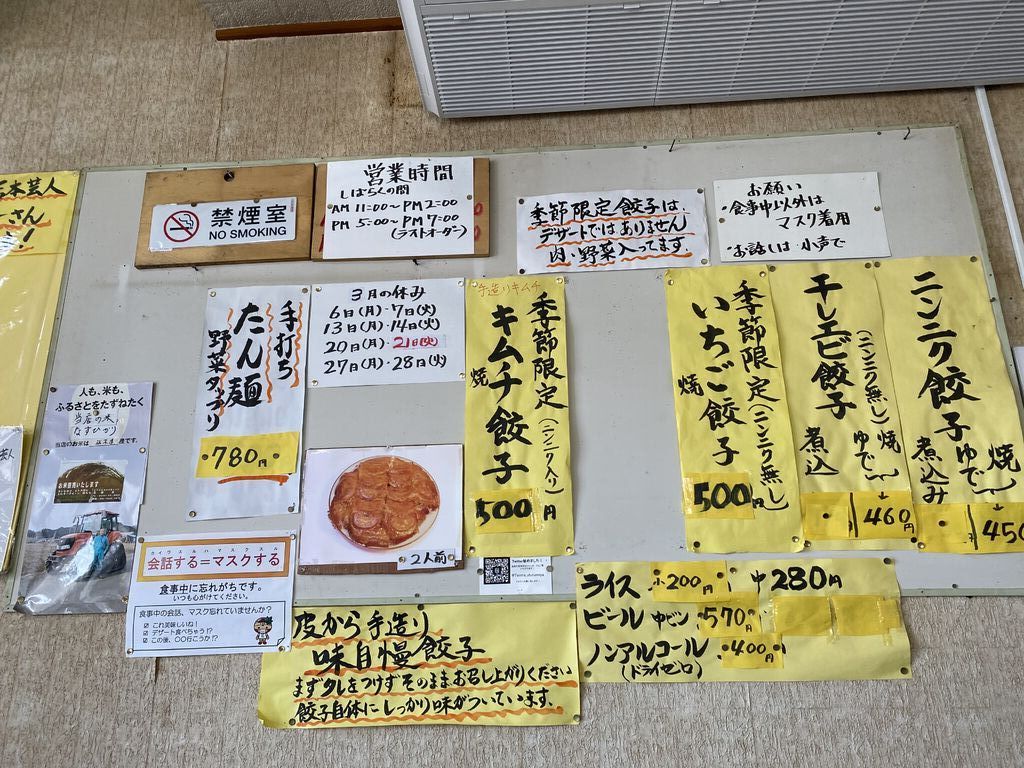 禁煙室
NO SMOKING
営業時間
しばらくの間
AM 11:00～PM 2:00
PM 5:00～PM 7:00
(ラストオーダー)
季節限定餃子は、
デザートではありません
肉・野菜入ってます。
お願い
・食事中以外は
マスク着用
・お話しは小声で
手打ち
たん麺
野菜タップリ
780円
3月の休み
6日(月)・7日(火)
13日(月)・14日(火)
20日(月)・21日(火)
27日(月)・28日(火)
手造りキムチ
季節限定(ニンニク入り)
キムチ餃子
焼
500円
季節限定(ニンニク無し)
いちご餃子
焼
500円
干しエビ餃子
(ニンニク無し)
焼
ゆで
煮込
460円
ニンニク餃子
焼
ゆで
煮込み
450
人も、米も、
ふるさとをたずねたく
当店の米
なすひかり
当店のお米は
産です。
2人前
会話する=マスクする
食事中に忘れがちです。
いつも心がけてください。
食事中の会話、マスク忘れていませんか?
これ美味しいね!
デザート食べちゃう!?
この後、〇〇行こうか!?
皮から手造り
味自慢餃子
まずタレをつけずそのままお召し上がりください
餃子自体にしっかり味がついています。
ライス 小200円 中280円
ビール 中ビン 570円
ノンアルコール 400円
(ドライゼロ)